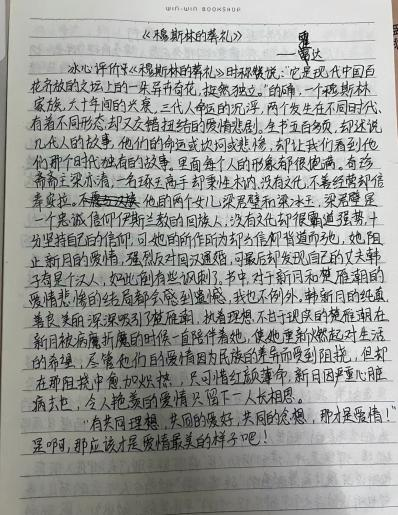 WIN-WIN BOOKSHOP
《穆斯林的葬礼》
——霍达
冰心评价《穆斯林的葬礼》时称赞说："它是现代中国百
花齐放的文坛上的一朵异卉奇花，挺然独立。"的确，一个穆斯林
家族，六十年间的兴衰，三代人命运的沉浮，两个发生在不同时代、
有着不同形态却又交错扭结的爱情悲剧。全书五百多页，却述说
几代人的故事，他们的命运或坎坷或悲惨，却让我们看到他
们那个时代独有的故事。里面每个人的形象都很饱满。奇珍
斋斋主梁亦清，一名琢玉高手却秉性木讷，没有文化，不善经营却信
奉安拉。他的两个女儿梁君璧和梁冰玉，梁君璧是
一个忠诚信仰伊斯兰教的回族人，没有文化却很霸道强势，十
分坚持自己的信仰，可她的所作所为却与信仰背道而驰，她阻
止新月的爱情，强烈反对回汉通婚，可最后却发现自己的丈夫韩
子奇是个汉人，如此倒有些讽刺了。书中，对于新月和楚雁潮的
爱情悲惨的结局都实感到遗憾，我也不例外，韩新月的纯真
善良美丽深深吸引了楚雁潮，执着理想，不甘于现实的楚雁潮在
新月被病魔折魔的时候一直陪伴着她，使她重新燃起对生活
的希望，尽管他们的爱情因为民族的差异而受到阻挠，但却
在那阻挠中愈加炽热，只可惜红颜薄命，新月因严重心脏
病去世，令人艳羡的爱情只留下一人长相思。
"有共同理想，共同的爱好，共同的念想，那才是爱情！"
是啊，那应该才是爱情最美的样子吧！